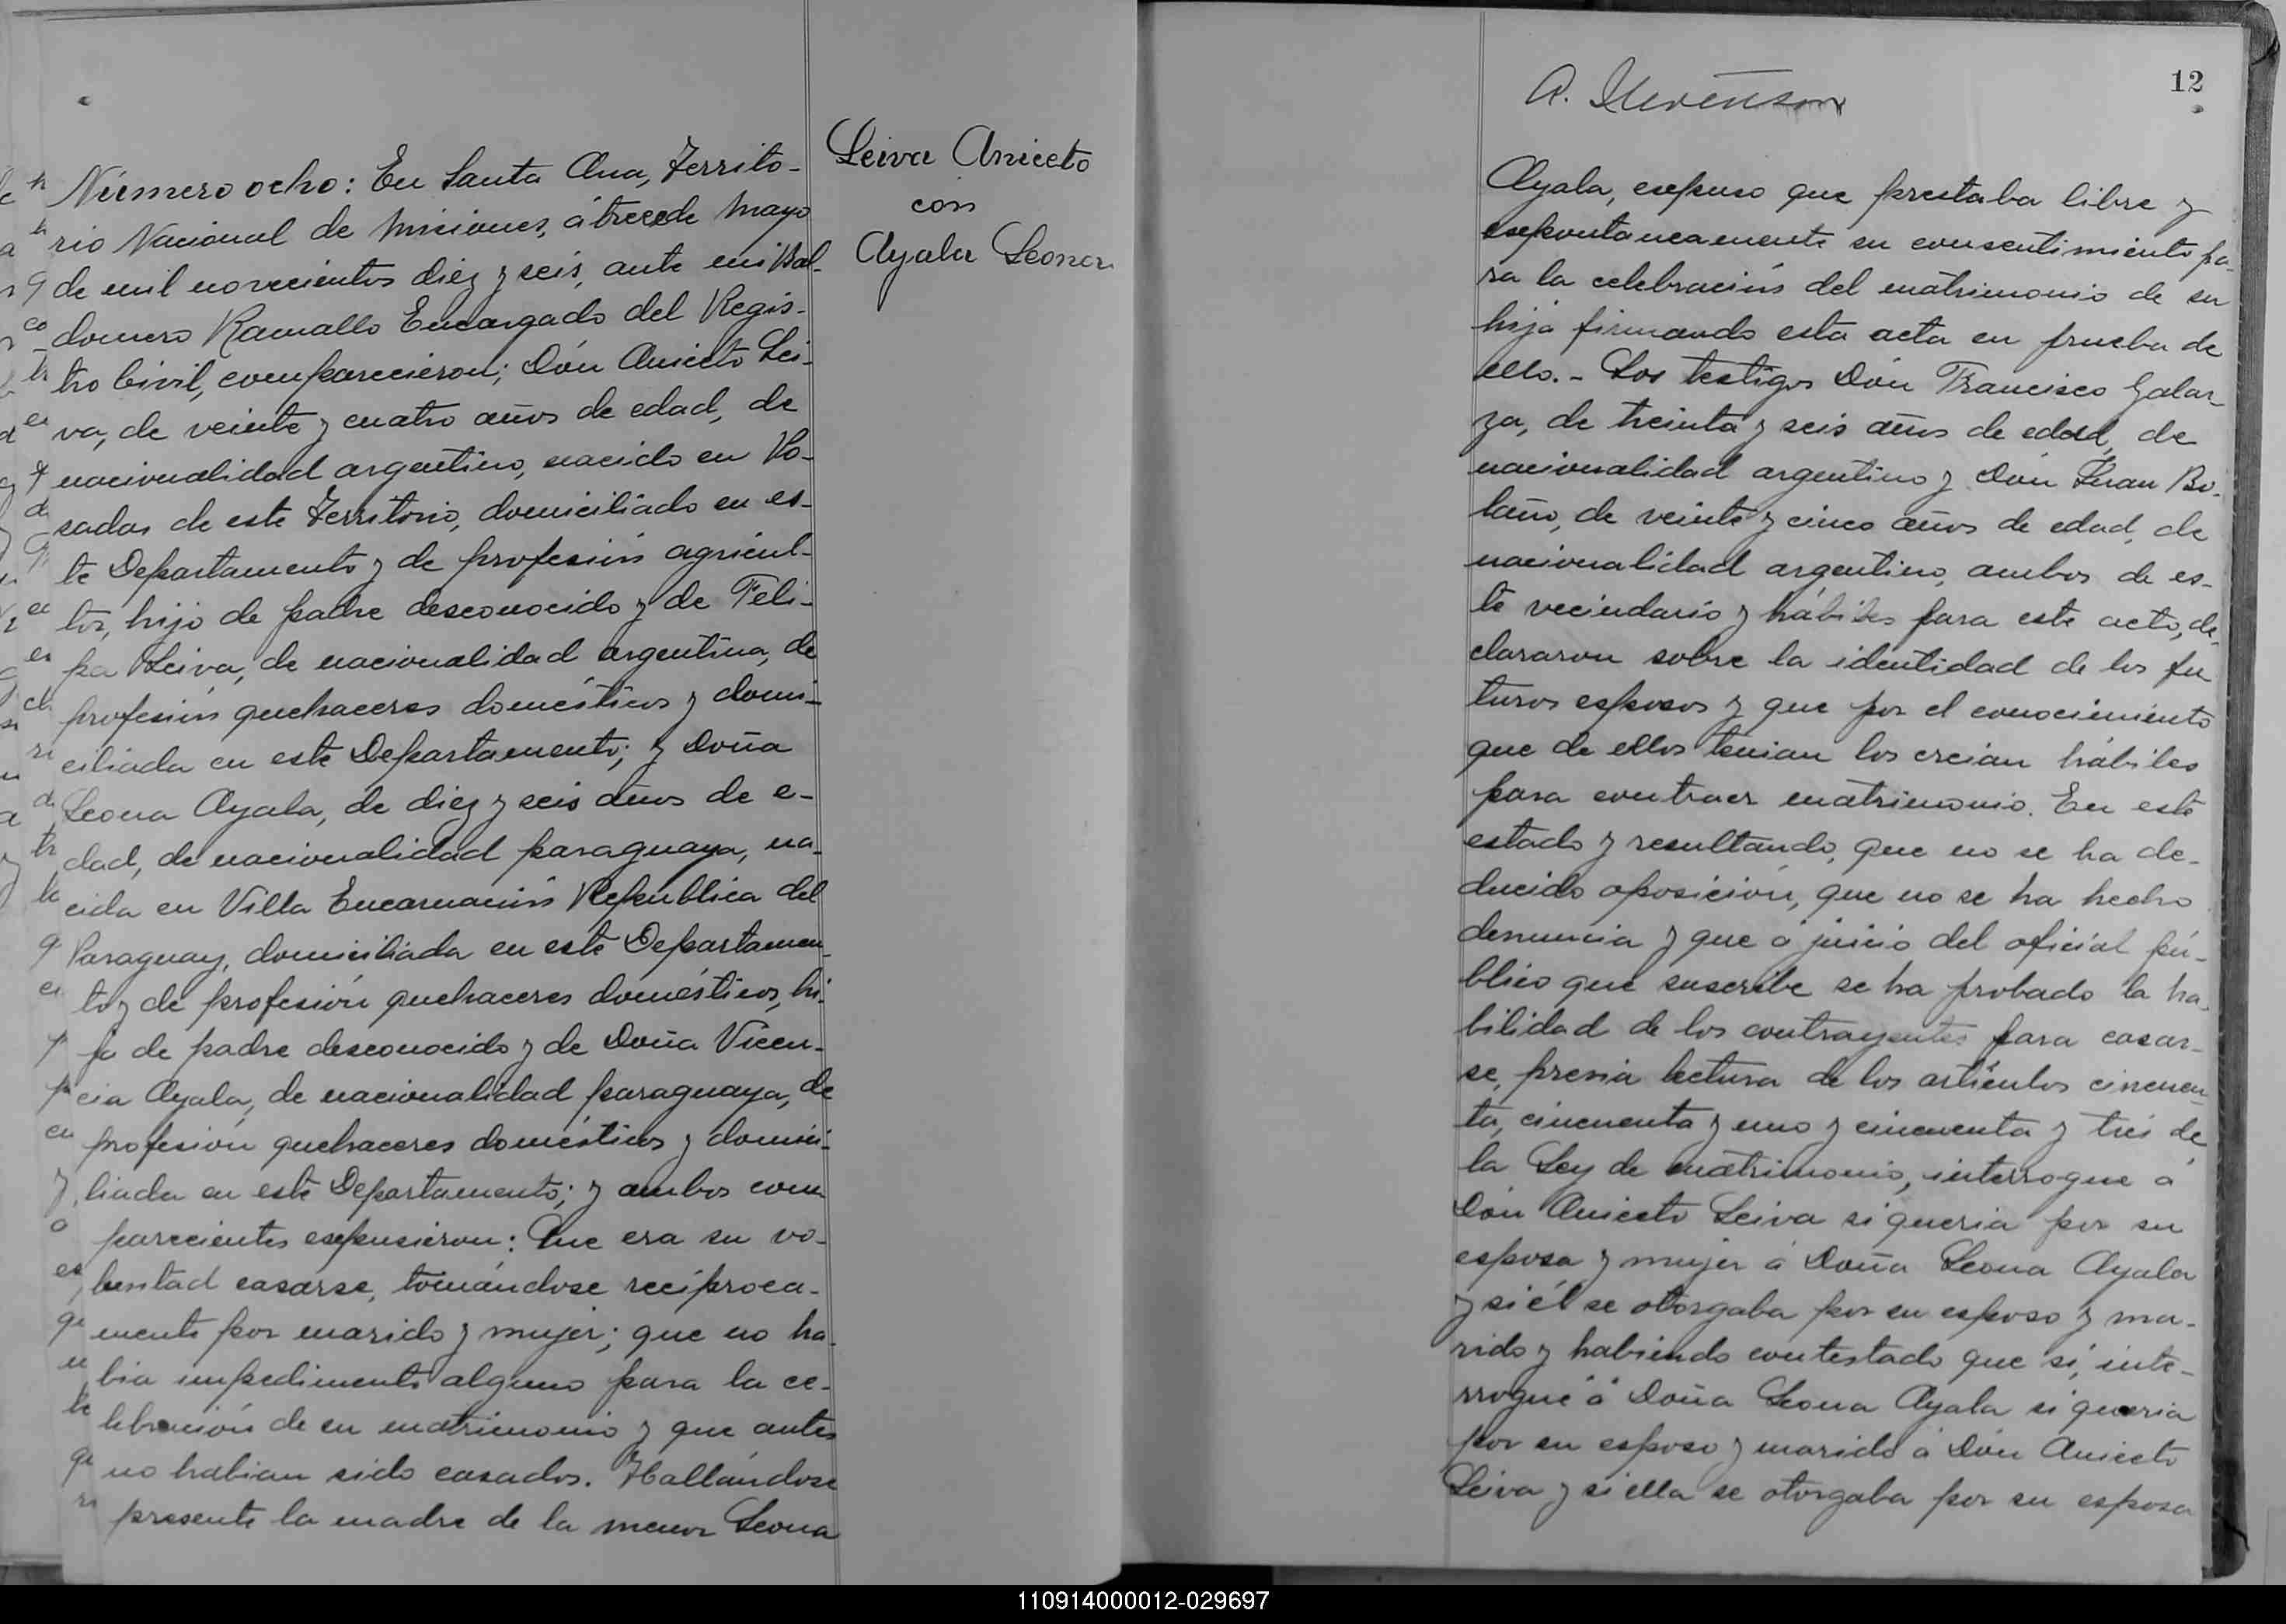 Número ocho: En Santa Ana, Territo-
rio Nacional de Misiones, á trece de Mayo
de mil novecientos diez y seis, ante mi Bal-
domero Ramallo Encargado del Regis-
tro Civil, comparecieron; Dón Aniceto Lei-
va, de veinte y cuatro años de edad, de
nacionalidad argentino, nacido en Po-
sadas de este Territorio, domiciliado en es-
te Departamento y de profesión agricul-
tor, hijo de padre desconocido y de Feli-
pa Leiva, de nacionalidad argentina, de
profesión quehaceres domésticos y domi-
ciliada en este Departamento; y Doña
Leona Ayala, de diez y seis años de e-
dad, de nacionalidad paraguaya, na-
cida en Villa Encarnación República del
Paraguay, domiciliada en este Departamen-
to y de profesión quehaceres domésticos, hi-
ja de padre desconocido y de Doña Vicen-
cia Ayala, de nacionalidad paraguaya, de
profesión quehaceres domésticos y domici-
liada en este Departamento; y ambos com-
parecientes expusieron: Que era su vo-
luntad casarse, tomándose recíproca-
mente por marido y mujer; que no ha-
bia impedimento alguno para la ce-
lebración de su matrimonio y que antes
no habian sido casados. Hallándose
presente la madre de la menor Leona
Leiva Aniceto
con
Ayala Leona
12
Ayala, expuso que prestaba libre y
espontaneamente su consentimiento pa-
ra la celebración del matrimonio de su
hija firmando esta acta en prueba de
ello.- Los testigos Dón Francisco Galar-
za, de treinta y seis años de edad, de
nacionalidad argentino y Dón Juan Bo-
laño, de veinte y cinco años de edad, de
nacionalidad argentino, ambos de es-
te vecindario y hábiles para este acto, de-
clararon sobre la identidad de los fu
turos esposos y que por el conocimiento
que de ellos tenian los creian hábiles
para contraer matrimonio. En este
estado y resultando, que no se ha de-
ducido oposición, que no se ha hecho
denuncia y que á juicio del oficial pú-
blico que suscribe se ha probado la ha-
bilidad de los contrayentes para casar-
se, previa lectura de los artículos cincuen-
ta, cincuenta y uno y cincuenta y tres de
la Ley de matrimonio, interrogue á
Dón Aniceto Leiva si queria por su
esposa y mujer á Doña Leona Ayala
y si él se otorgaba por su esposo y ma-
rido y habiendo contestado que sí, inte-
rrogué á Doña Leona Ayala si queria
por su esposo y marido á Dón Aniceto
Leiva y si ella se otorgaba por su esposa
110914000012-029697